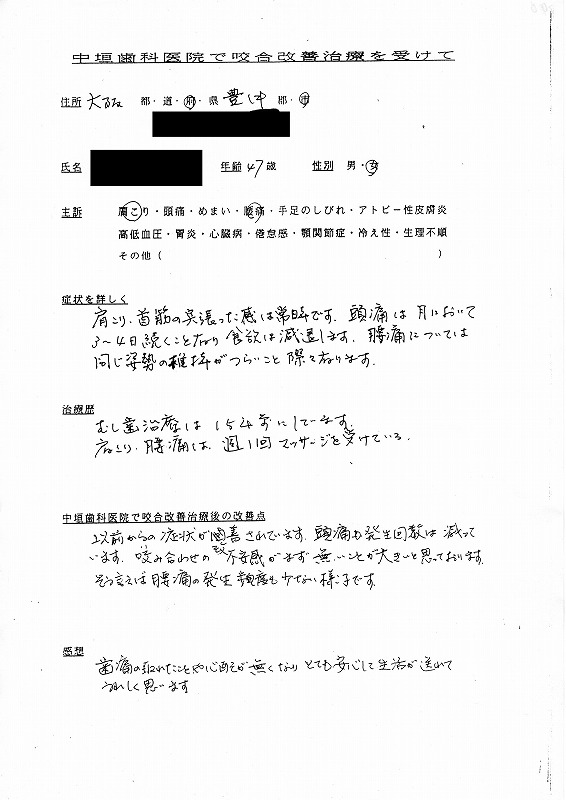 中垣歯科医院で咬合改善治療を受けて
住所 大阪 都・道・府・県 豊中 郡・市
氏名 年齢 47歳 性別 男・女
主訴 肩こり・頭痛・めまい・腰痛・手足のしびれ・アトピー性皮膚炎
高低血圧・胃炎・心臓病・倦怠感・顎関節症・冷え性・生理不順
その他( )
症状を詳しく
肩こり、首筋の突張った感は常時です。頭痛は月において
3〜4日続くことなり食欲は減退します。腰痛については
同じ姿勢の維持がつらいこと際々なります。
治療歴
むし歯治療は15才年にしています。
肩こり、腰痛は、週1回マッサージを受けている。
中垣歯科医院で咬合改善治療後の改善点
以前からの症状が改善されています。頭痛も発生回数は減って
います。咬み合わせの不安感がまず無いことが大きいと思っております。
そう言えば腰痛の発生頻度も少ない様子です。
感想
歯痛の取れたことや心配が無くなりとても安心して生活が送れて
うれしく思います